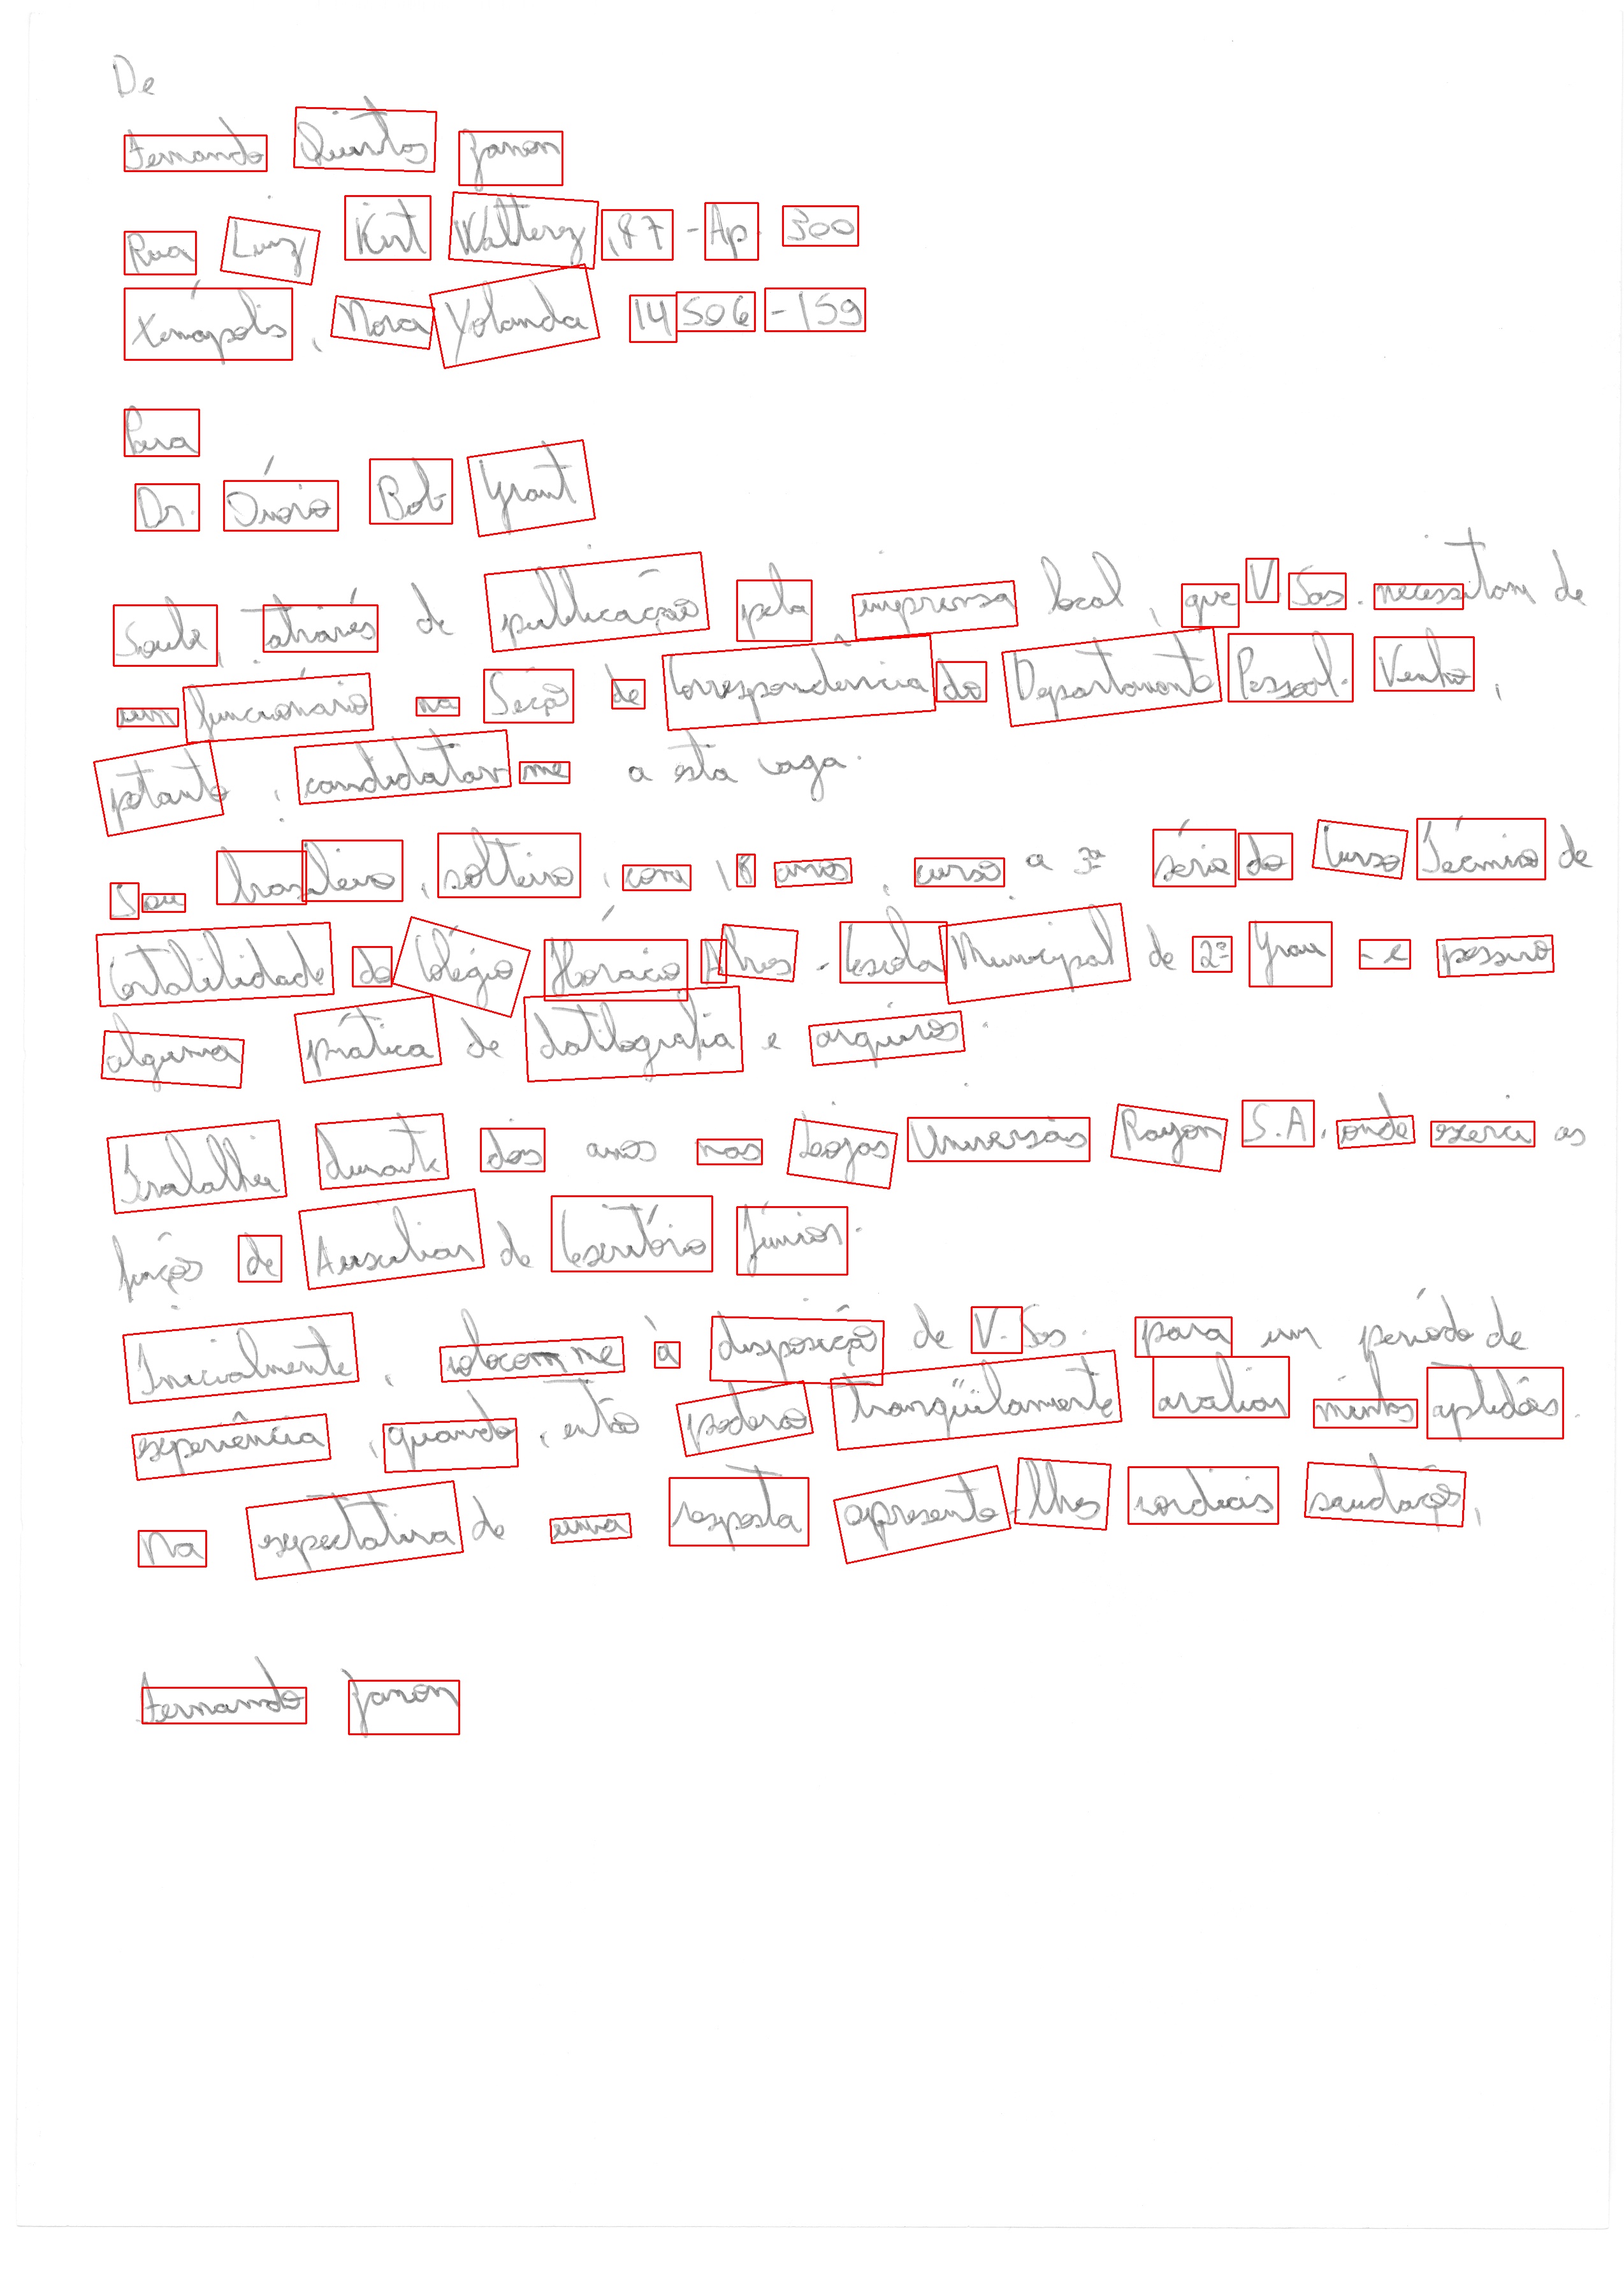 De
Fernando Quintos Zanon
Rua Luiz Kirt Walterez, 87 - Ap. 300
Xenápolis, Nova Yolanda 14506-159
Para
Dr. Ónorio Bob Grant
Soube, através de publicação pela imprensa local, que V. Sas. necessitam de
um funcionário na Seção de Correspondência do Departamento Pessoal. Venho,
potanto, candidatar-me a esta vaga.
Sou brasileiro, solteiro, com 18 anos, curso a 3ª série do Curso Técnico de
Contabilidade do Colégio Horácio Alves - Escola Municipal de 2º Grau - e possuo
alguma prática de datilografia e arquivos.
Trabalhei durante dois anos nas Lojas Universão Rayon S.A. onde exerci as
funções de Auxiliar de Escritório Júnior.
Inicialmente, coloco-me à disposição de V. Sas. para um período de
experiência, quando, então poderão tranqüilamente avaliar minhas aptidões.
Na expectativa de uma resposta apresento-lhes cordiais saudações,
Fernando Zanon